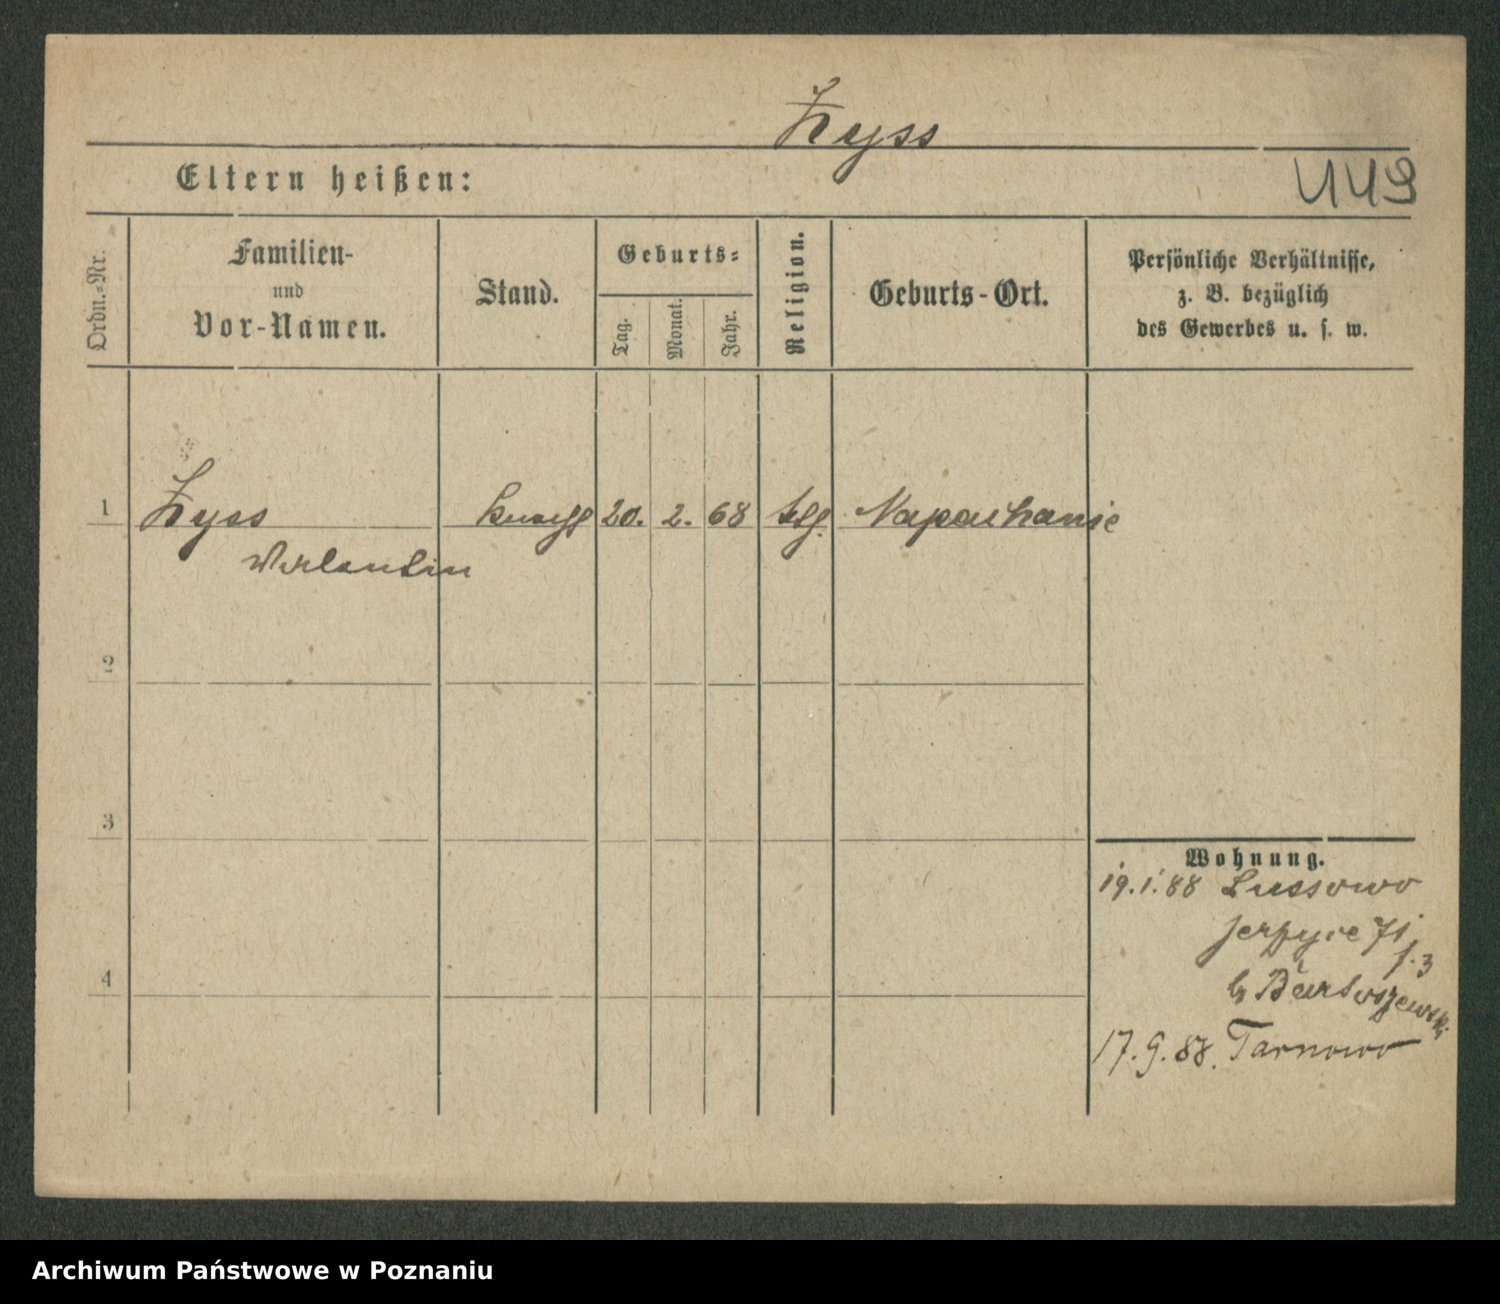 Zyss
Eltern heißen:
Ordn.-Nr.
Familien-
und
Vor-Namen.
Stand.
Geburts-
Tag.
Monat.
Jahr.
Religion.
Geburts-Ort.
Persönliche Verhältnisse,
z. B. bezüglich
des Gewerbes u. s. w.
1 Zyss 20. 2. 68 Napachanie
Valentin
2
3
4
Wohnung.
19.1.88 Lussowo
Jerzyce 71
b Bartoszewski
17.9.88. Tarnowo
Archiwum Państwowe w Poznaniu